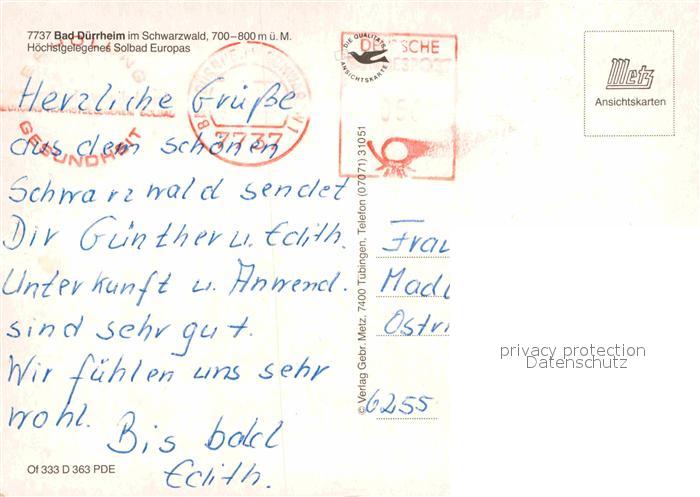 7737 Bad Dürrheim im Schwarzwald, 700–800 m ü. M.
Höchstgelegenes Solbad Europas
DIE QUALITÄTS
ANSICHTSKARTE
DEUTSCHE
BUNDESPOST
7737
GESUNDHEIT
Metz
Ansichtskarten
Herzliche Grüße
aus dem schönen
Schwarzwald sendet
Dir Günther u. Edith.
Unterkunft u. Anwend.
sind sehr gut.
Wir fühlen uns sehr
wohl.
Bis bald
Edith.
© Verlag Gebr. Metz, 7400 Tübingen, Telefon (07071) 31051
Frau
6255
privacy protection
Datenschutz
Of 333 D 363 PDE